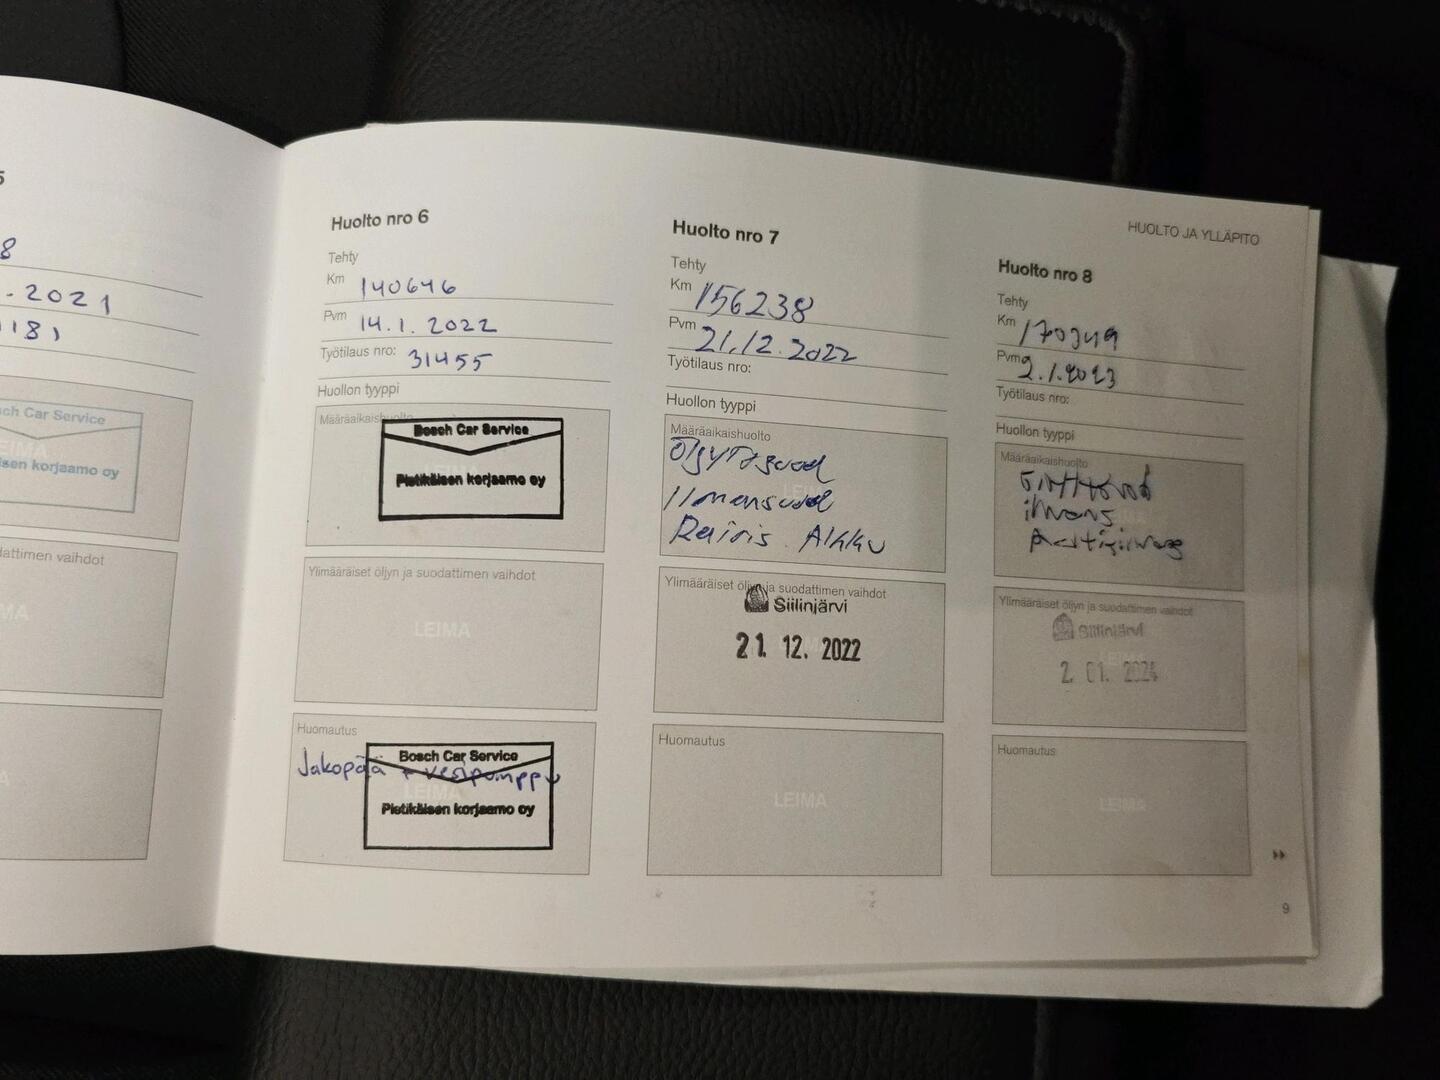 5
8
.2021
1181
ch Car Service
sen korjaamo oy
dattimen vaihdot
HUOLTO JA YLLÄPITO
Huolto nro 6
Tehty
Km 140646
Pvm 14.1.2022
Työtilaus nro: 31455
Huollon tyyppi
Määräaikaishuolto
Bosch Car Service
Pietikäisen korjaamo oy
Ylimääräiset öljyn ja suodattimen vaihdot
LEIMA
Huomautus
Jakopää + vesipumppu
Bosch Car Service
LEIMA
Pietikäisen korjaamo oy
Huolto nro 7
Tehty
Km 156238
Pvm 21.12.2022
Työtilaus nro:
Huollon tyyppi
Määräaikaishuolto
Öljyt+suod
Ilmansuod
Raitis. Akku
Ylimääräiset öljyn ja suodattimen vaihdot
Siilinjärvi
21. 12. 2022
Huomautus
LEIMA
Huolto nro 8
Tehty
Km 170349
Pvm 2.1.2023
Työtilaus nro:
Huollon tyyppi
Määräaikaishuolto
ilmans.
Ylimääräiset öljyn ja suodattimen vaihdot
Siilinjärvi
2. 01. 2024
Huomautus
LEIMA
9